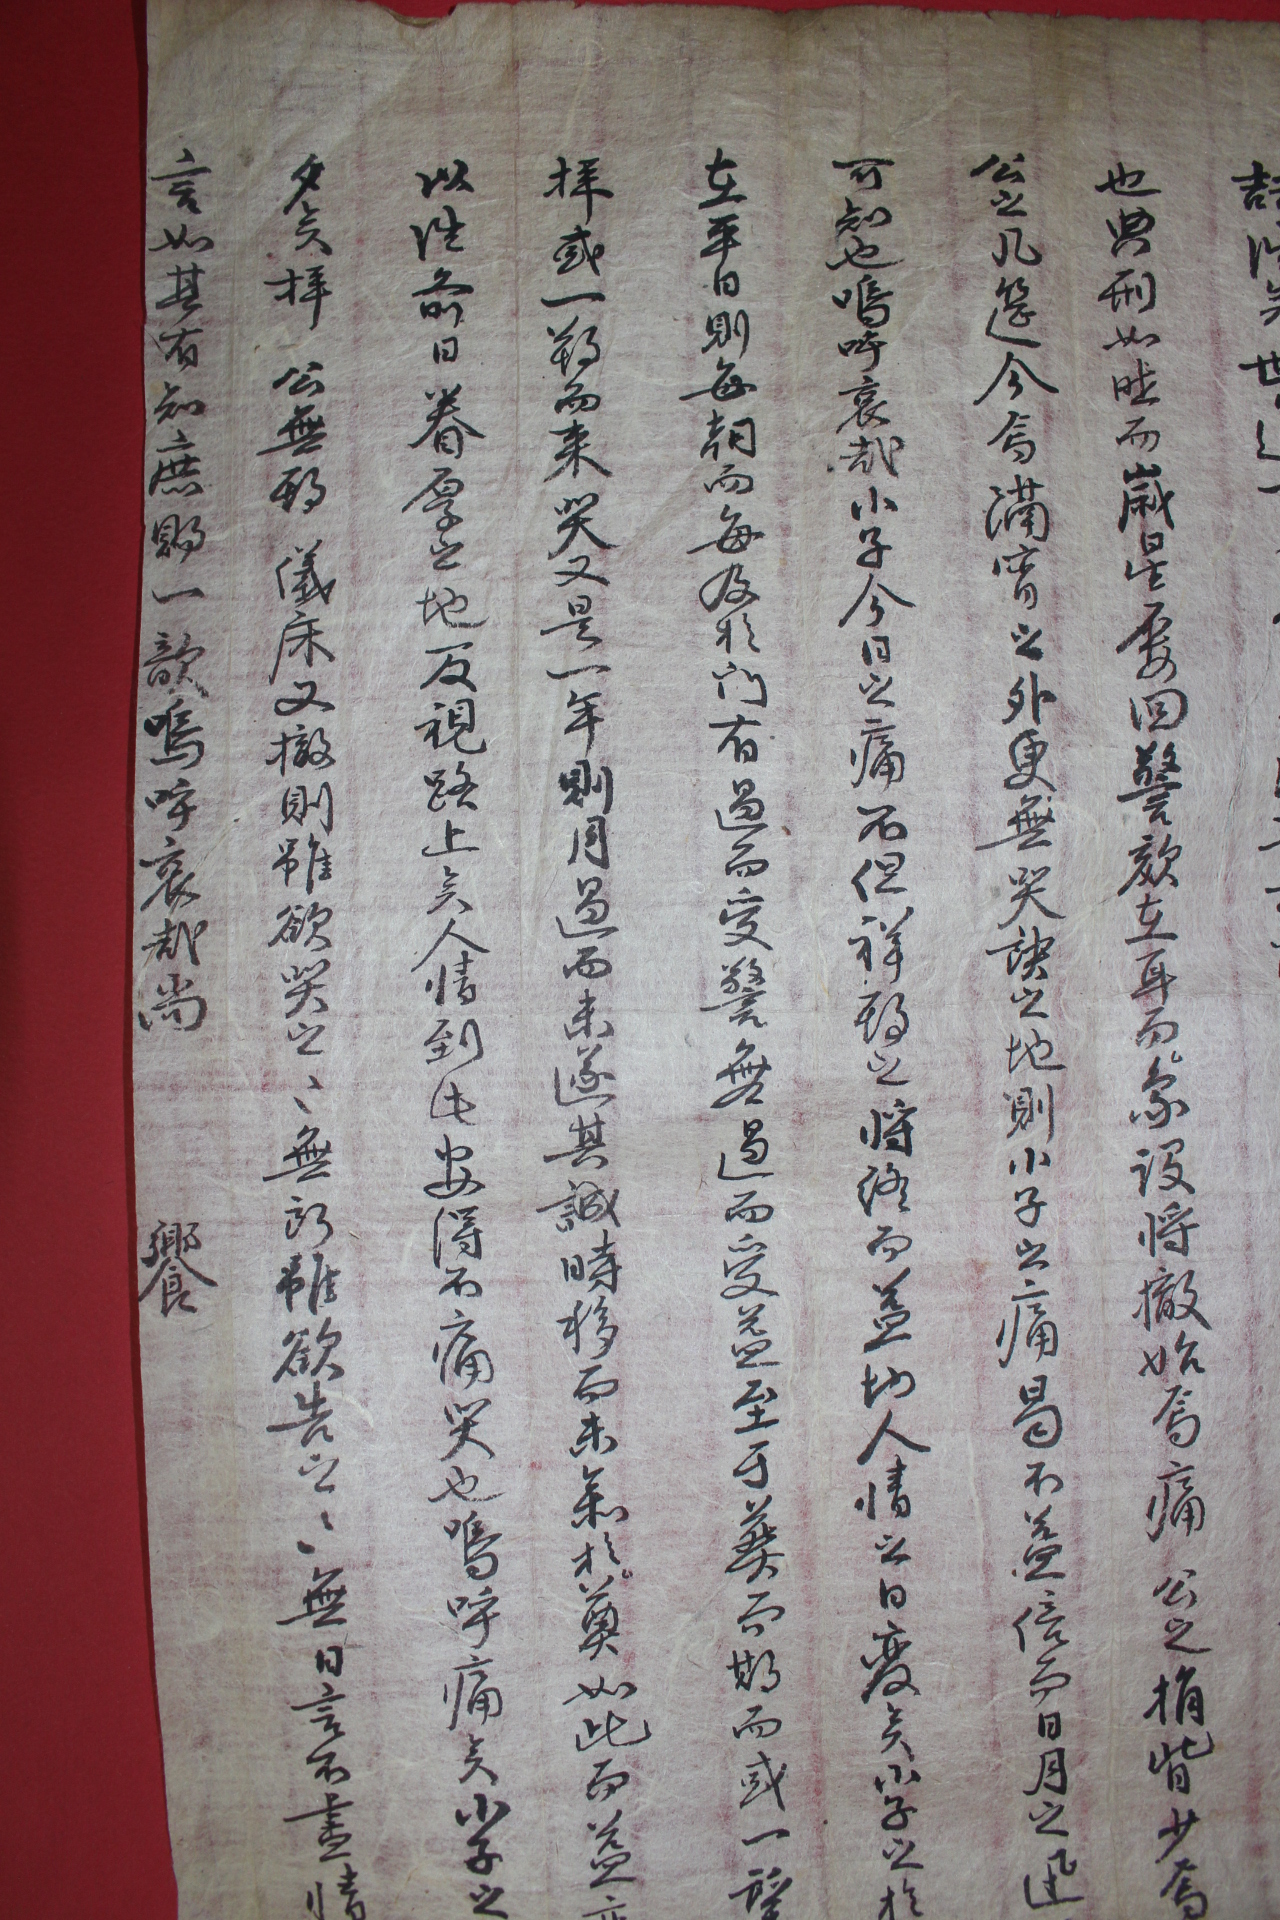 也典刑如昨而歲星屢回警欬在耳而象設將撤始焉痛 公之捐背少焉
公之凡筵今焉滿宵之外更無哭訣之地則小子之痛曷不益倍而日月之迅
可知也嗚呼哀哉小子今日之痛不但祥期之將終而益切人情之日變矣小子之於
在平日則每朝而每及於門有過而受警無過而受益至于葬而期而或一聲
拜或一朔而來哭又是一年則月過而未遂其誠時移而未氣於奠如此而益
以往前日眷厚之地反視路上矣人情到此安得不痛哭也嗚呼痛矣小子之
多矣拜 公無期 儀床又撤則雖欲哭之〻無所雖欲告之〻無日言不盡情
言如其有知庶賜一歆嗚呼哀哉尚 饗